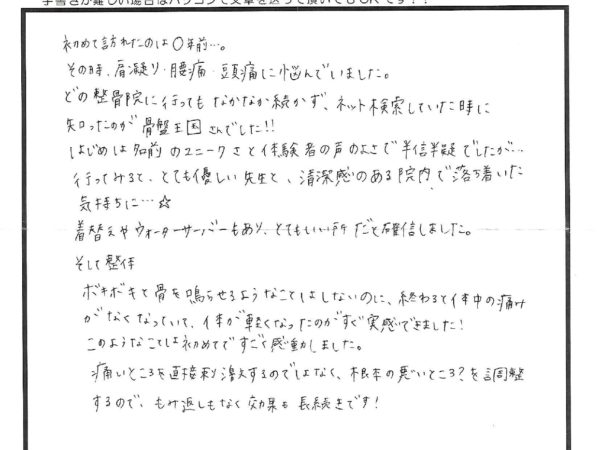 手書きが難しい場合はパソコンで文章を送って頂いてもOKです!!
初めて訪れたのは〇年前…。
その時、肩凝り・腰痛・頭痛に悩んでいました。
どの整骨院に行っても なかなか続かず、ネット検索していた時に
知ったのが 骨盤王国さんでした!!
はじめは名前のユニークさと体験者の声のよさで半信半疑でしたが…
行ってみると、とても優しい先生と、清潔感のある院内で落ち着いた
気持ちに…☆
着替えやウォーターサーバーもあり、とてもいい所だと確信しました。
そして整体
ボキボキと骨を鳴らせるようなことはしないのに、終わると体中の痛み
がなくなっていて、体が軽くなったのがすぐ実感できました!
このようなことは初めてですごく感動しました。
痛いところを直接刺激するのではなく、根本の悪いところ?を調整
するので、もみ返しもなく効果も長続きです!